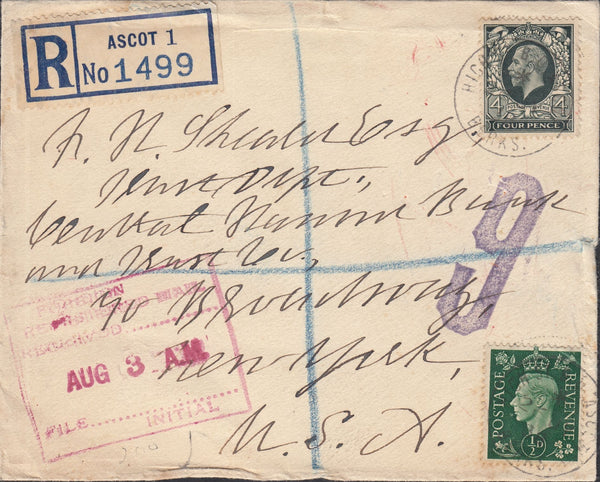 R
ASCOT 1
No 1499
4 4
FOUR PENCE
BERKS.
Esq
Trust Dept.,
Central Hanover Bank
and Trust Co.,
70 Broadway,
New York,
U. S. A.
9
FOREIGN
REGISTERED MAIL
RECEIVED
AUG 3 A.M.
FILE INITIAL
POSTAGE REVENUE
½D